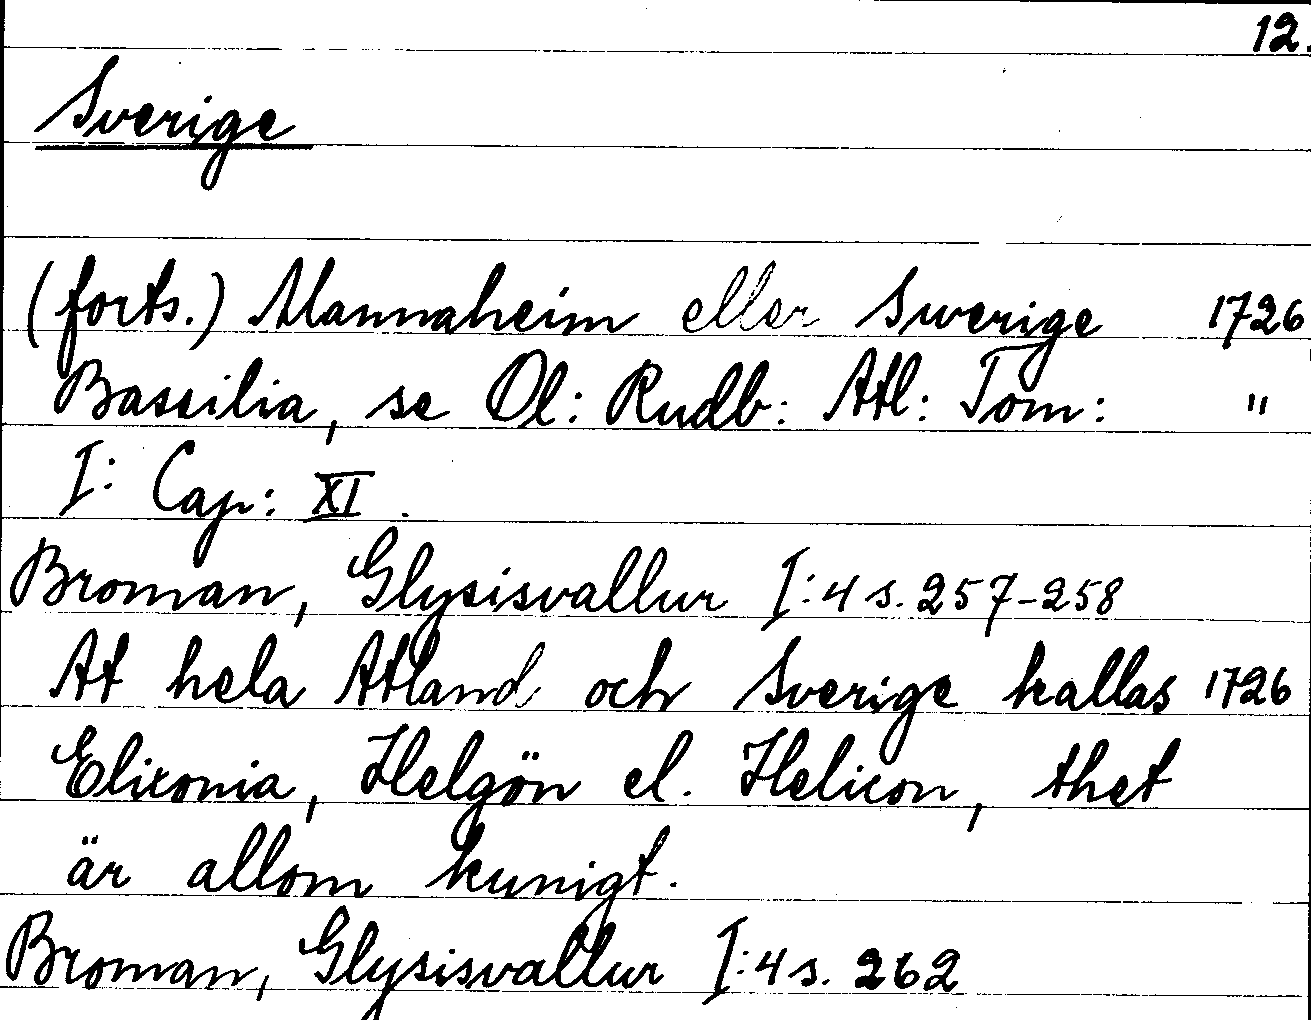 12.
Sverige
(forts.) Mannaheim eller Swerige 1726
Bassilia, se Ol: Rudb: Atl: Tom: "
I: Cap: XI.
Broman, Glysisvallur I:4 s. 257-258
At hela Atland och Sverige kallas 1726
Elixonia, Helgön el. Helicon, thet
är allom kunigt.
Broman, Glysisvallur I:4 s. 262